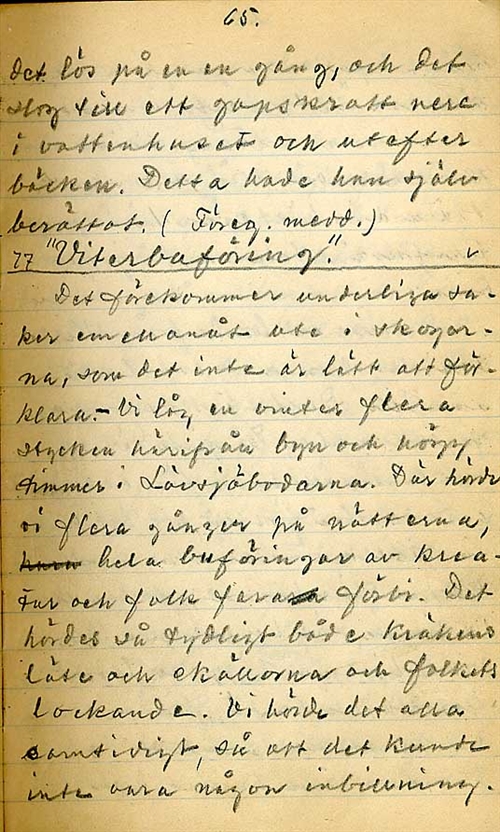 65.
det lös på en en gång, och det
slog till ett gapskratt nere
i vattenhuset och utefter
bäcken. Detta hade han själv
berättat. (Föreg. medd.)
77 "Viterbuföring".
Det förekommer underliga sa-
ker emellanåt ute i skogar-
na, som det inte är lätt att för-
klara. - Vi låg en vinter flera
stycken härifrån byn och högg
timmer i Lövsjöbodarna. Där hörde
vi flera gånger på nätterna,
hela buföringar av krea-
tur och folk fara förbi. Det
hördes så tydligt både kräkens
läte och skällorna och folkets
lockande. Vi hörde det alla
samtidigt, så att det kunde
inte vara någon inbillning.